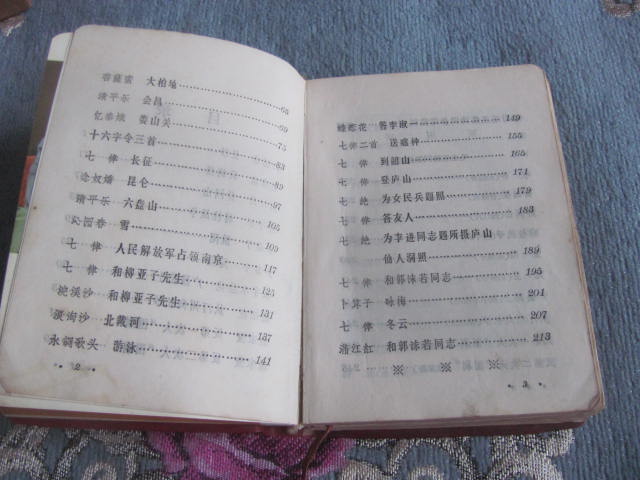 菩萨蛮 大柏地……65
清平乐 会昌……69
忆秦娥 娄山关……75
十六字令三首……83
七 律 长征……89
念奴娇 昆仑……97
清平乐 六盘山……105
沁园春 雪……109
七 律 人民解放军占领南京……117
七 律 和柳亚子先生……125
浣溪沙 和柳亚子先生……131
浪淘沙 北戴河……137
水调歌头 游泳……141
· 2 ·
蝶恋花 答李淑一……149
七律二首 送瘟神……155
七 律 到韶山……165
七 律 登庐山……171
七 绝 为女民兵题照……179
七 律 答友人……183
七 绝 为李进同志题所摄庐山
仙人洞照……189
七 律 和郭沫若同志……195
卜算子 咏梅……201
七 律 冬云……207
满江红 和郭沫若同志……213
· 3 ·